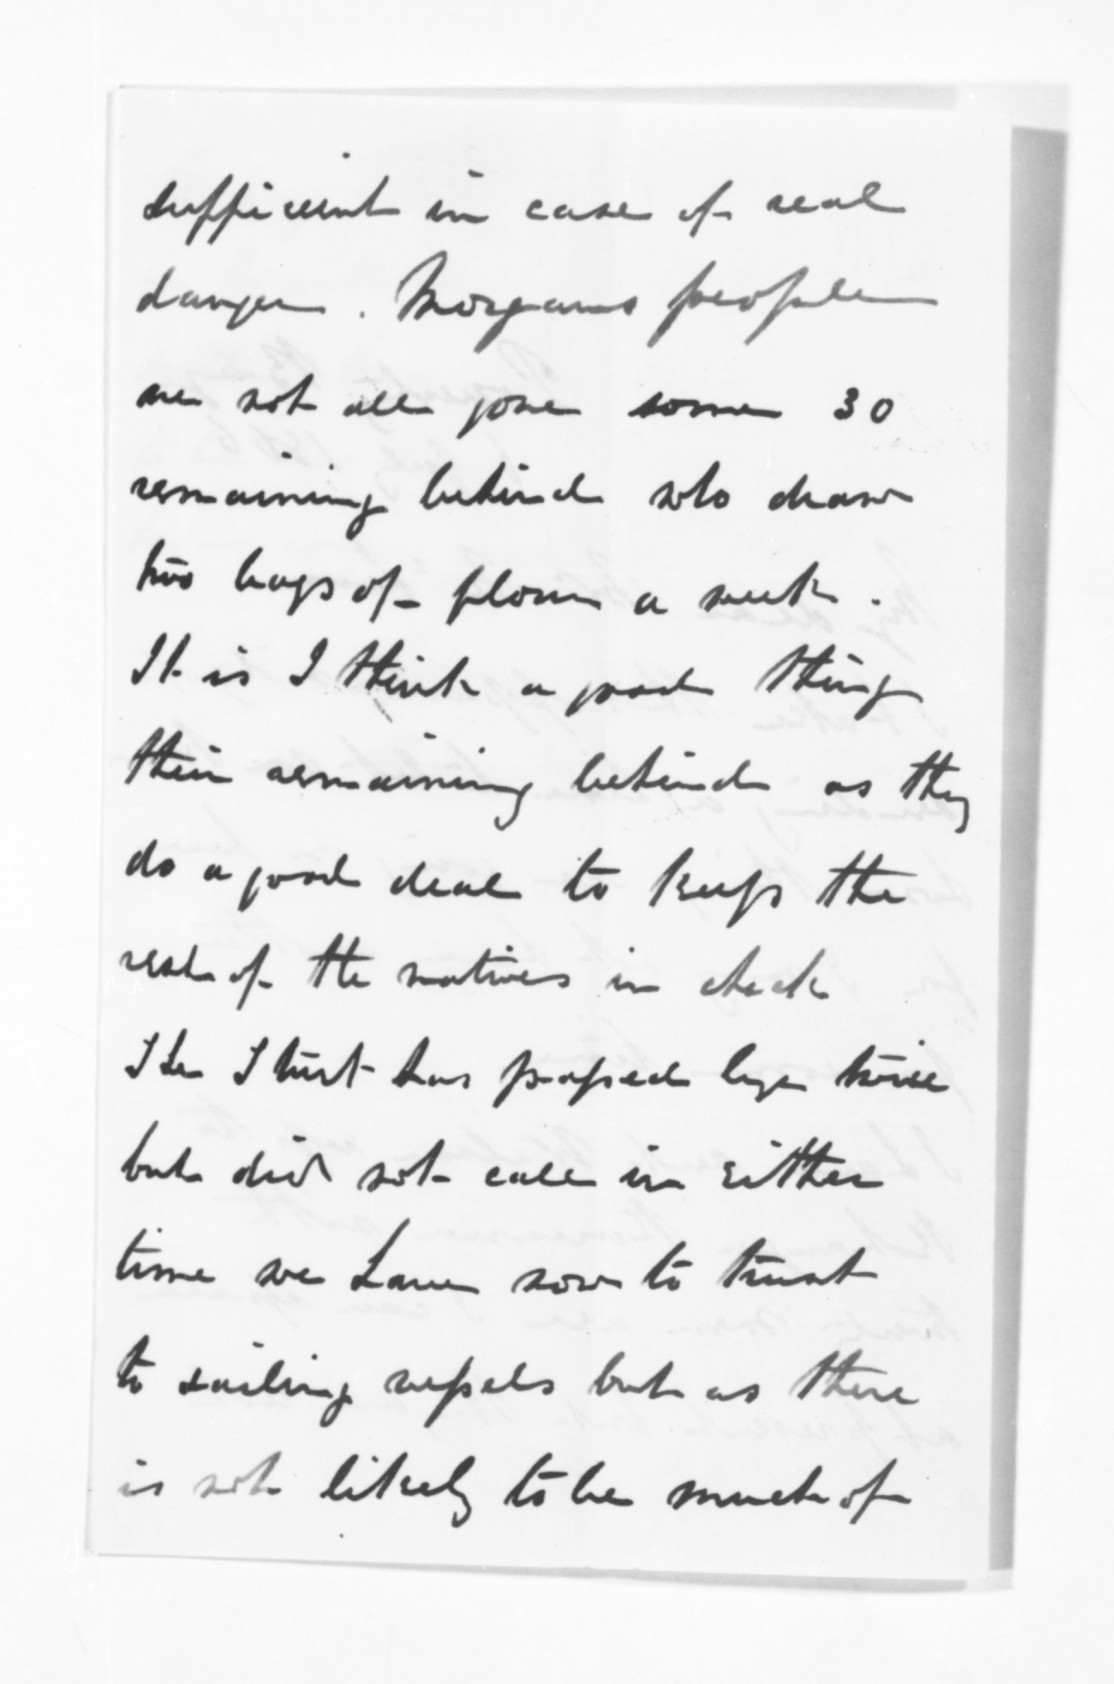 sufficient in case of real
danger. Morgans people
are not all gone some 30
remaining behind who draw
two bags of flour a week.
It is I think a good thing
their remaining behind as they
do a good deal to keep the
rest of the natives in check
The Sturt has passed by twice
but did not call in either
time we have now to trust
to sailing vessels but as there
is not likely to be much of